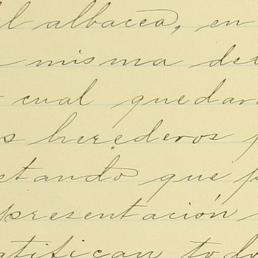 el albacea, en
misma de
cual quedar
s herederos
ctando que p
presentación
ratifican to